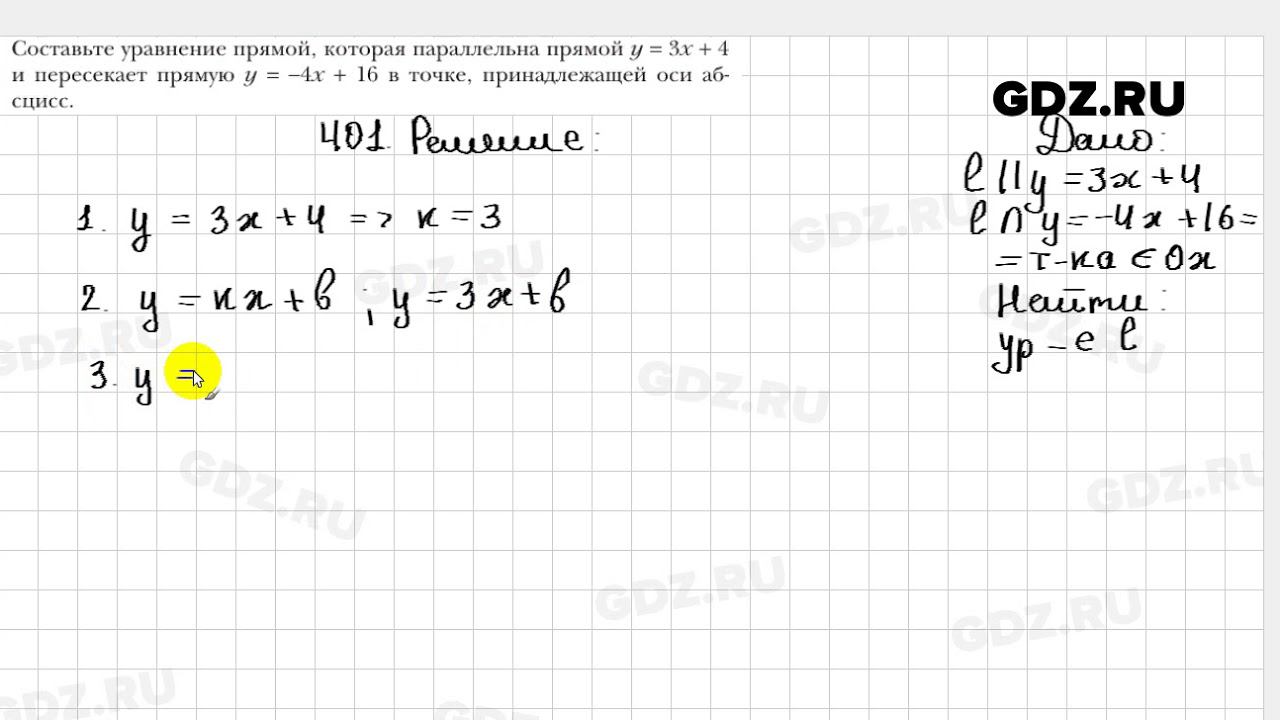 Составьте уравнение прямой, которая параллельна прямой y = 3x + 4
и пересекает прямую y = −4x + 16 в точке, принадлежащей оси аб-
сцисс.
GDZ.RU
401. Решение:
Дано:
l || y = 3x + 4
l ∩ y = -4x + 16 =
= т-ка ∈ Ox
Найти:
ур-е l
1. y = 3x + 4 => к = 3
2. y = кx + b ; y = 3x + b
3. y =
GDZ.RU
GDZ.RU
GDZ.RU
GDZ.RU
GDZ.RU
GDZ.RU
GDZ.RU
GDZ.RU
GDZ.RU
GDZ.RU
GDZ.RU